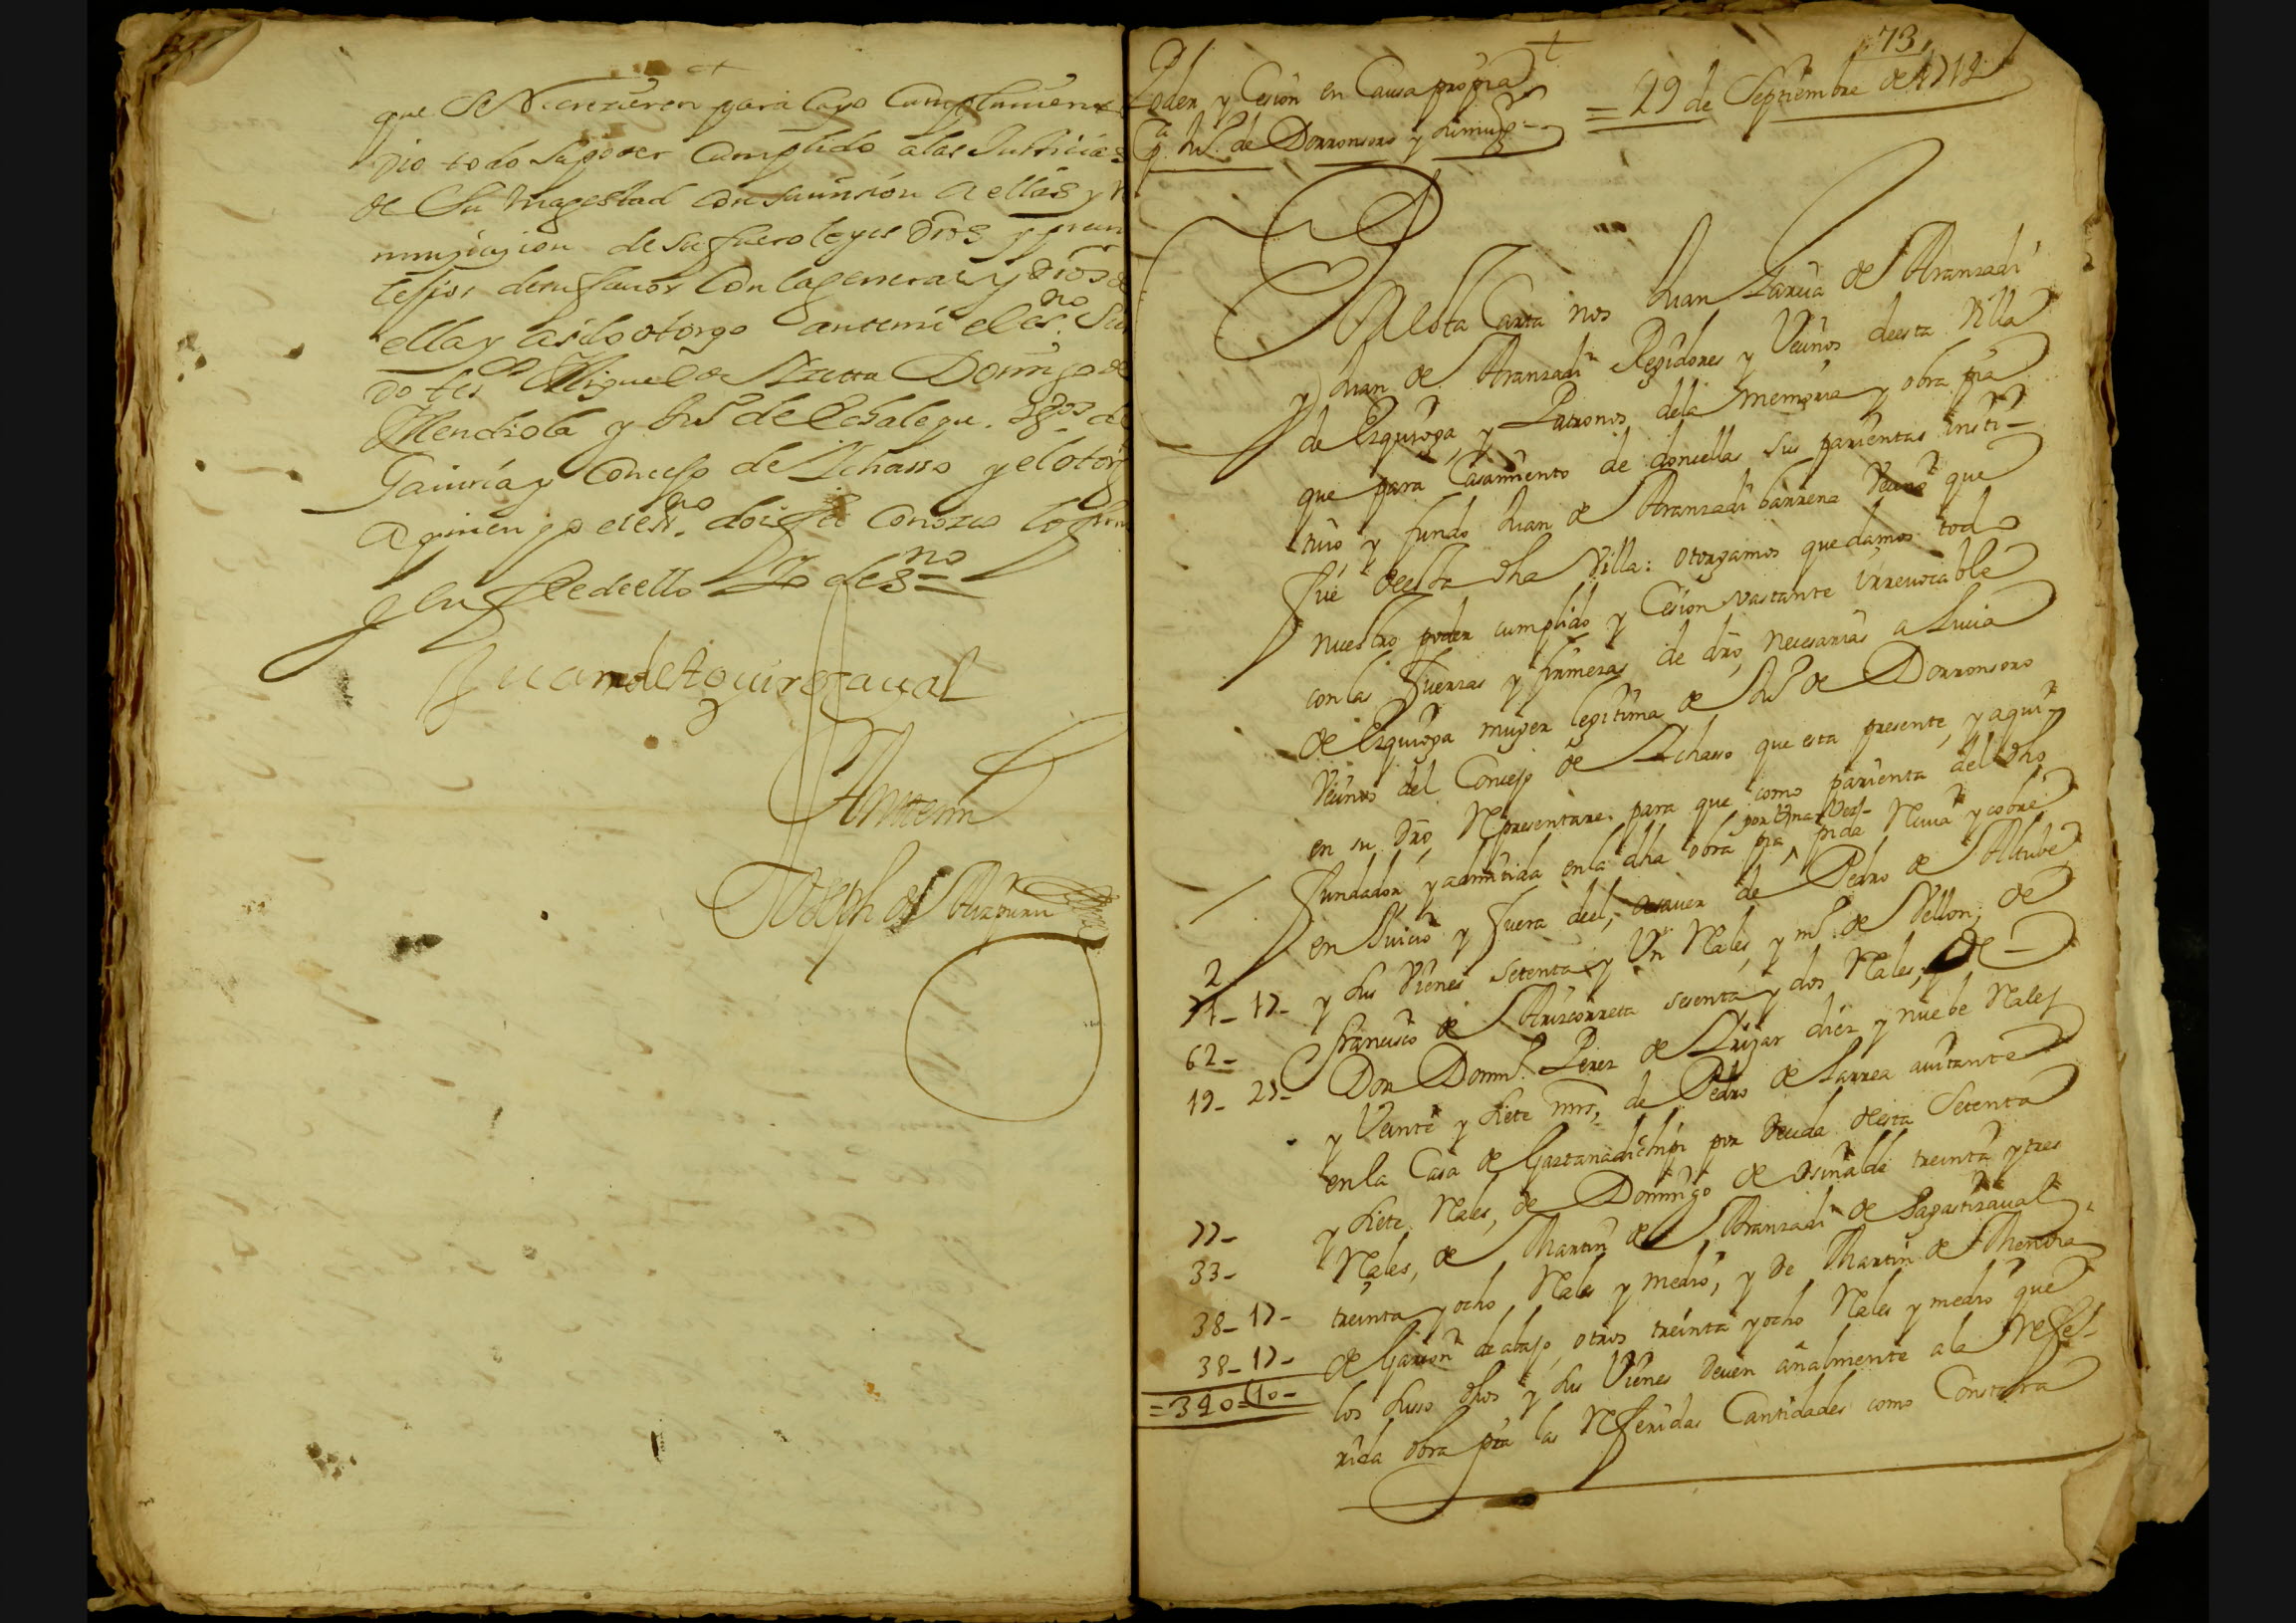 que se Requirieren para cuyo Cumplimien
dio todo su poder Cumplido a las Justicias
de Su Magestad con sumision a ellas y
nunciacion de su fuero leyes dros y
de su fauor Con la general y dros de
ella y asi lo otorgo ante mi el es.no
do tes Miguel de Domingo de
Mendiola y Ju.º de vz.os de
Gauiria y Concejo de Ichasso y el otor
a quien yo el es.no doi fee conozco lo
y en fee de ello Yo el es.no
Juan de Aguirre
Ante mi
Joseph de Aizpuru
73
Poder, y Cesion en Causa propria
P.a Ju.º de Dorronsoro y su mug.r
= 29 de Septiembre de 1712
Por esta Carta nos Juan Garcia de Aranzadi
y Juan de Aranzadi Regidores y Vecinos de esta Villa
de Ezquioga, y Patronos de la memoria y obra pia
que para Casamiento de doncellas sus parientas insti-
tuio y fundo Juan de Aranzadi barrena Vecino que
fué de esta dha Villa: otorgamos que damos todo
nuestro poder cumplido y Cesion vastante irreuocable
con las fuerzas y firmezas de dro necesarias a Lucia
de Ezquioga muger legitima de Ju.º de Dorronsoro
Vecinos del Concejo de Ichasso que esta presente, y a quien
en su dro Representare: para que como parienta del dho
fundador y admitida en la dha obra pia por una Vez pida Reciua y cobre
en Juicio y fuera del, asauer de Pedro de Altube
71- 17- y sus Vienes setenta y Un Rales, y m.º de Vellon; de
62- Francisco de Arizcorreta sesenta y dos Rales; de
19- 27- Don Dom.º Perez de Lizar diez y nuebe Rales
y Veinte y siete mrs, de Pedro de Larrea auitante
en la Casa de Gaztanadichipi por Deuda desta Setenta
77- y siete Rales, de Domingo de Osinalde treinta y tres
33- Rales, de Martin de Aranzadi de Sagastizaual
38- 17- treinta y ocho Rales y medio, y de Martin de Mendia
38- 17- de Garzon de abajo, otros treinta y ocho Rales y medio que
=340=10- los suso dhos y sus Vienes deuen añalmente a la Refe-
rida obra pia las Referidas Cantidades como Constara